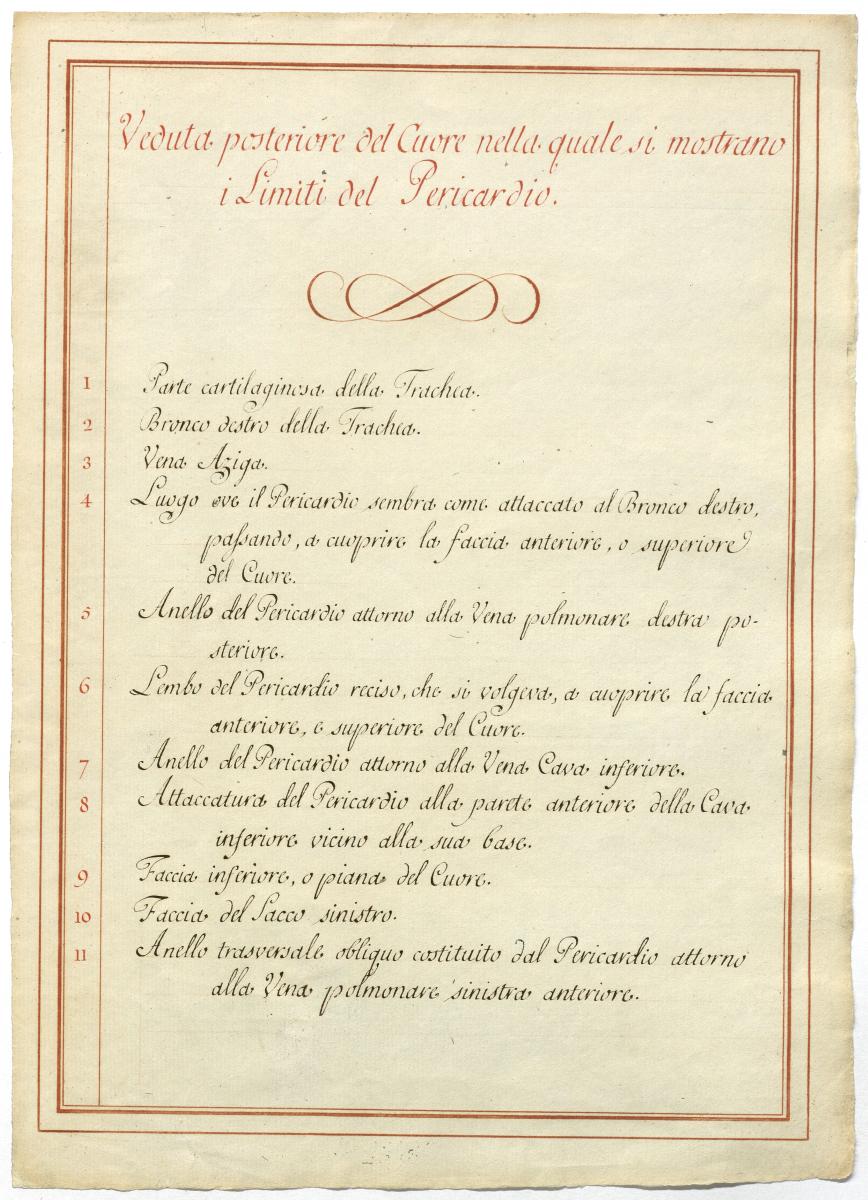 Veduta posteriore del Cuore nella quale si mostrano
i Limiti del Pericardio.
1 Parte cartilaginosa della Trachea.
2 Bronco destro della Trachea.
3 Vena Aziga.
4 Luogo ove il Pericardio sembra come attaccato al Bronco destro,
paſsando, a cuoprire la faccia anteriore, o superiore
del Cuore.
5 Anello del Pericardio attorno alla Vena polmonare destra po-
steriore.
6 Lembo del Pericardio reciso, che si volgeva, a cuoprire la faccia
anteriore, e superiore del Cuore.
7 Anello del Pericardio attorno alla Vena Cava inferiore.
8 Attaccatura del Pericardio alla parete anteriore della Cava
inferiore vicino alla sua base.
9 Faccia inferiore, o piana del Cuore.
10 Faccia del Sacco sinistro.
11 Anello trasversale obliquo costituito dal Pericardio attorno
alla Vena polmonare sinistra anteriore.